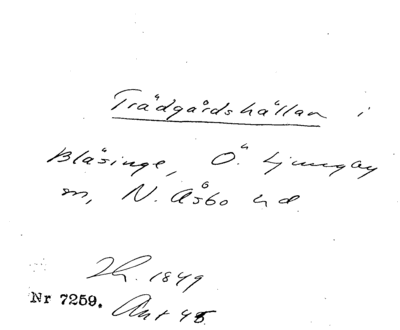 Trädgårdshällan i
Bläsinge, Ö. Ljungby
sn, N. Åsbo hd
Th. 1849
Nr 7259. Ant 45